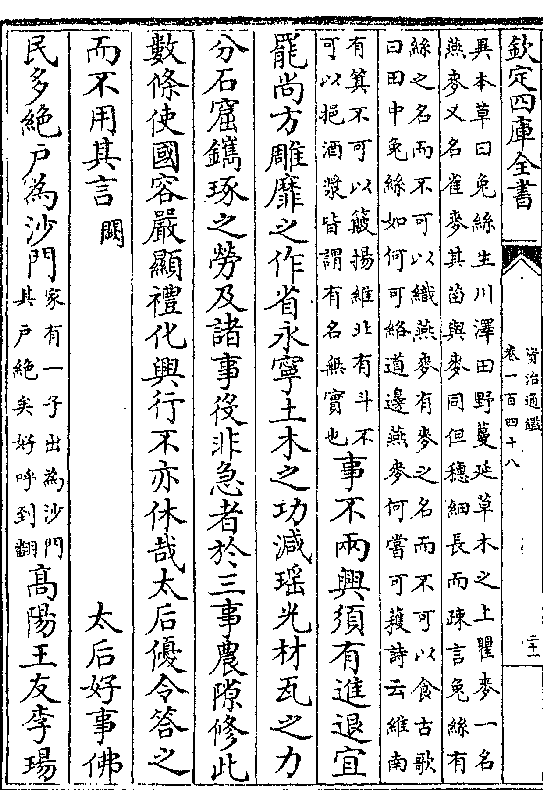 欽定四庫全書
資治通鑑
卷一百四十八
異本草曰兔絲生川澤田野蔓延草木之上瞿麥一名
燕麥又名雀麥其苗與麥同但穗細長而疎言兔絲有
絲之名而不可以織燕麥有麥之名而不可以食古歌
曰田中兔絲如何可絡道邊燕麥何嘗可穫詩云維南
有箕不可以簸揚維北有斗不
可以挹酒漿皆謂有名無實也
事不兩興須有進退宜
罷尚方雕靡之作省永寧土木之功減瑶光材瓦之力
分石窟鐫琢之勞及諸事役非急者於三事農隙修此
數條使國容嚴顯禮化興行不亦休哉太后優令答之
而不用其言 闕 太后好事佛
民多絶戸為沙門
家有一子出為沙門
其戸絶矣好呼到翻
高陽王友李瑒